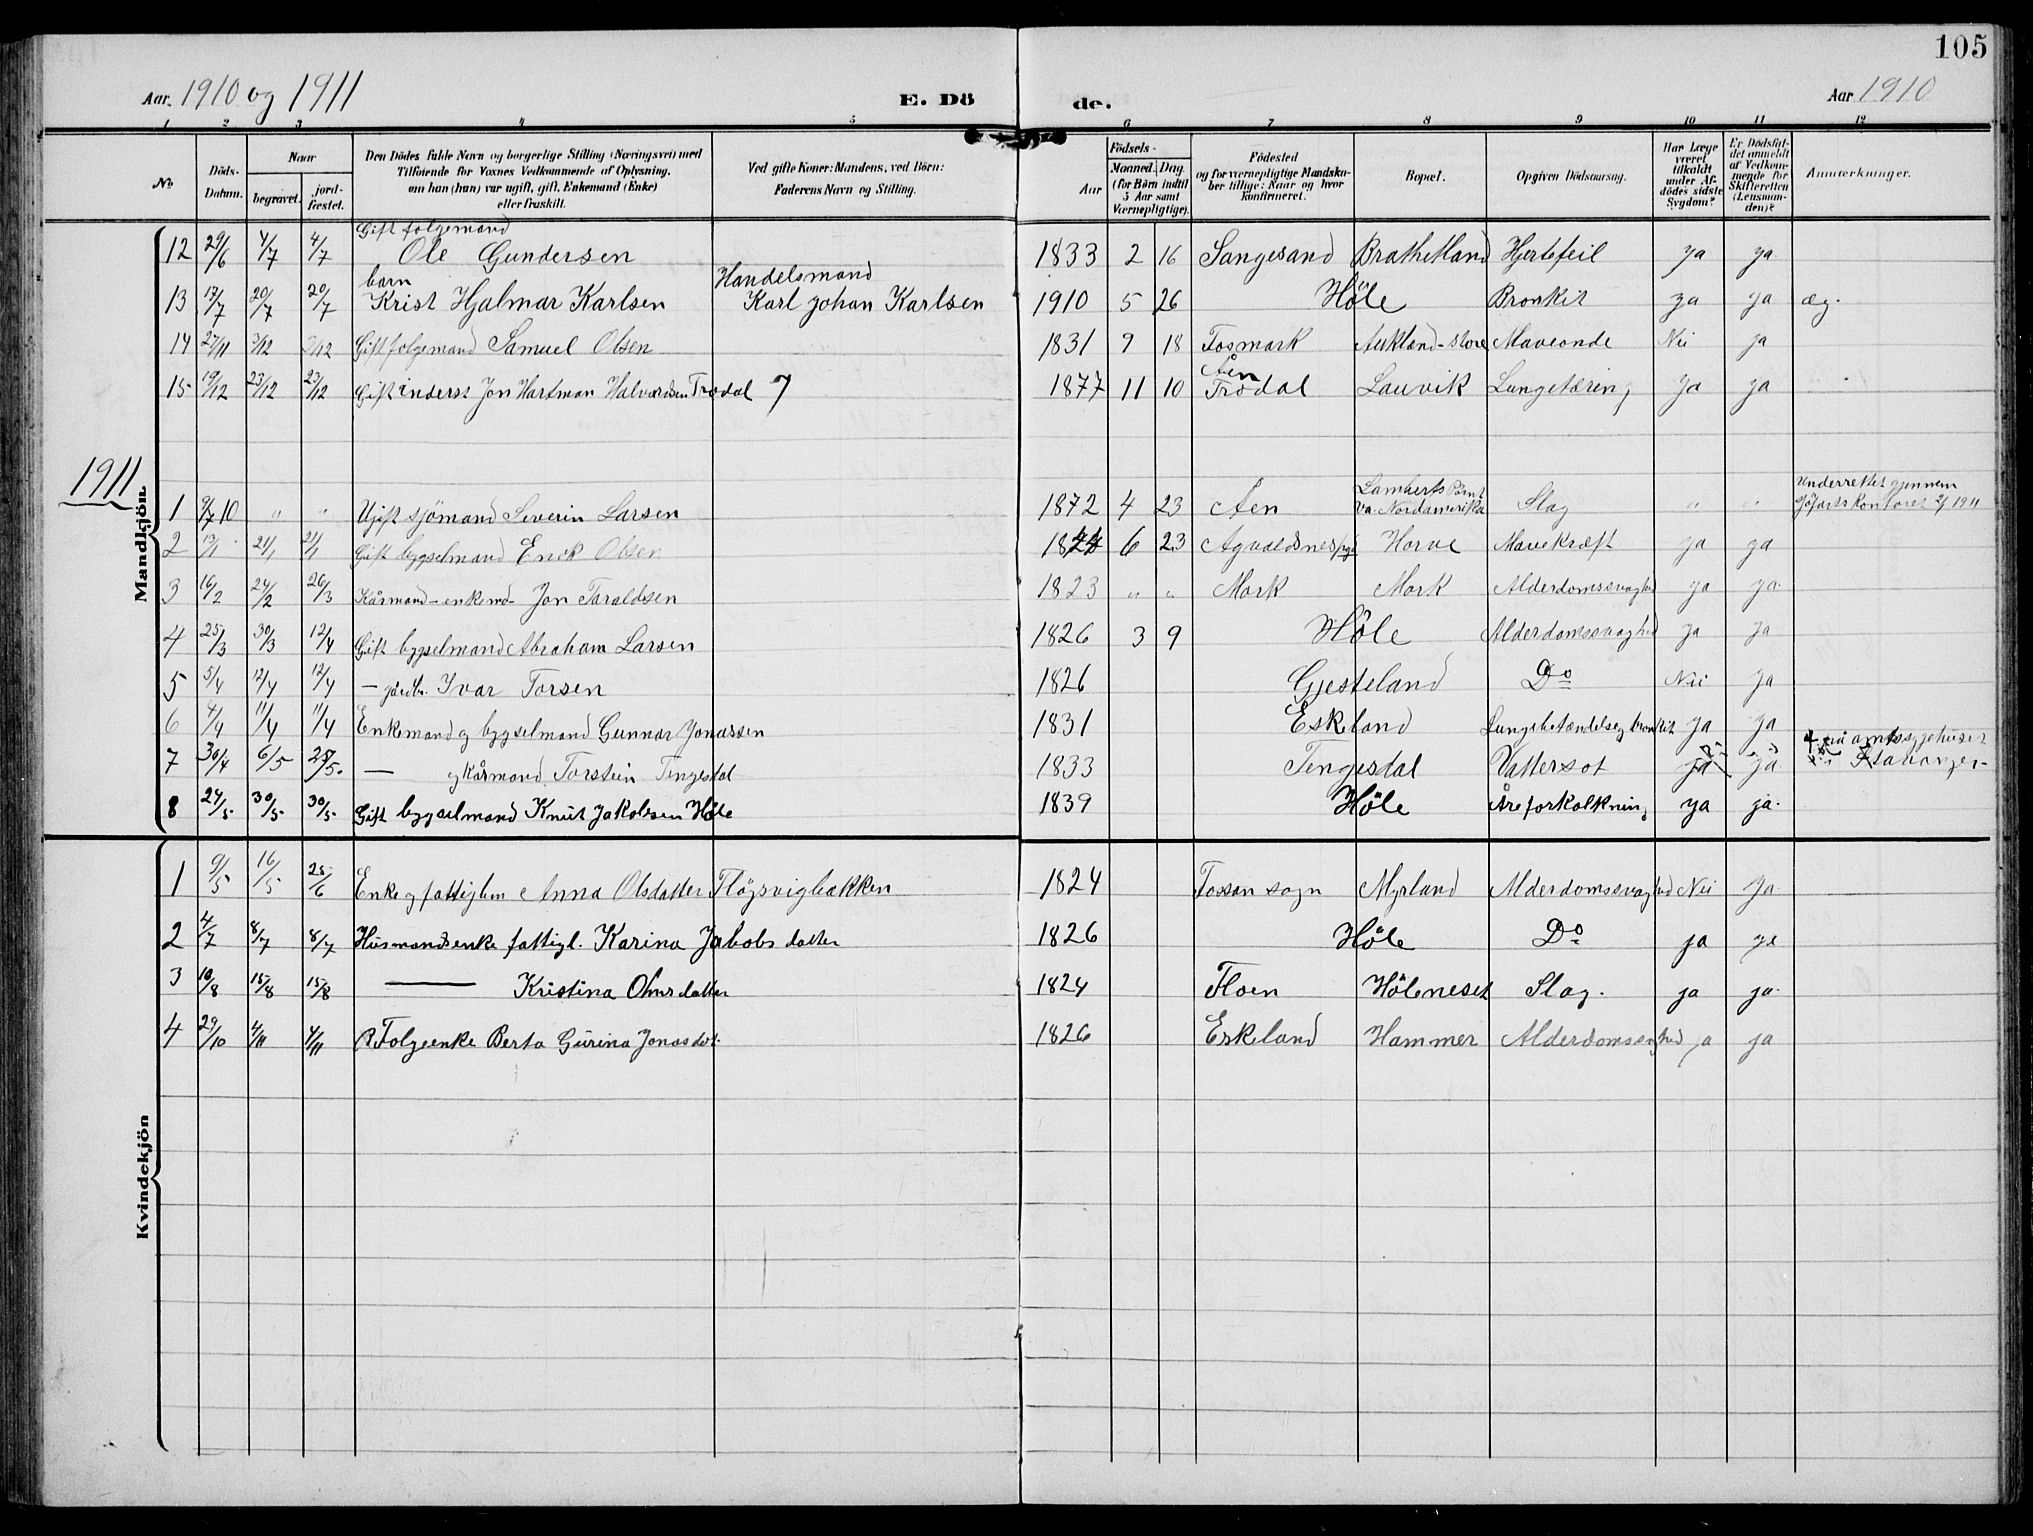 105
Aar. 1910 og 1911 E. Dö de. Aar 1910
1 2 3 4 5 6 7 8 9 10 11 12
No
Döds-Datum.
Naar
begravet.
jord-fæstet.
Den Dödes fulde Navn og borgerlige Stilling (Næringsvei) med
Tilföiende for Voxnes Vedkommende af Oplysning,
om han (hun) var ugift, gift, Enkemand (Enke)
eller fraskilt.
Ved gifte Koner: Mandens, ved Börn:
Faderens Navn og Stilling.
Födsels-
Aar
Maaned. Dag.
(for Börn indtil
5 Aar samt
Værnepligtige).
Födested
og for værnepligtige Mandska-
ber tillige: Naar og hvor
konfirmeret.
Bopæl.
Opgiven Dödsaarsag.
Har Læge
været
tilkaldt
under Af-
dödes sidste
Sygdom?
Er Dödsfal-
det anmeldt
af Vedkom-
mende for
Skifteretten
(Lensman-
den)?
Anmærkninger.
Mandkjön.
Gift folgemand
12 29/6 4/7 4/7 Ole Gundersen 1833 2 16 Sangesand Brathetland Hjertefeil ja ja
barn Handelsmand
13 13/7 20/7 20/7 Krist Hjalmar Karlsen Karl Johan Karlsen 1910 5 26 Höle Bronkit ja ja æg.
14 27/11 3/12 3/12 Gift folgemand Samuel Olsen 1831 9 18 Fosmark Aukland-store Maveonde Nei ja
Åen
15 19/12 23/12 23/12 Gift inderst Jon Hartman Halvardsen Trodal 7 1877 11 10 Trodal Lauvik Lungetæring Ja ja
1911
Lamberts Point Underrettet gjennem
1 9/7 10 " " Ugift sjömand Severin Larsen 1872 4 23 Aen Va. Nordamerika Slag " " Sjöfartskontoret 1911
2 13/1 21/1 21/1 Gift bygselmand Erick Olsen 6 23 Horve Mavekræft ja ja
3 16/2 24/2 26/3 Kårmand - enkemd - Jon Taraldsen 1823 " " Mork Mork Alderdomssvaghed ja ja
4 25/3 30/3 12/4 Gift bygselmand Abraham Larsen 1826 3 9 Höle Alderdomssvaghed ja ja
5 5/4 12/4 12/4 — Ivar Torsen 1826 Gjesteland Do Nei ja
6 4/4 11/4 11/4 Enkemand og bygselmand Gunnar Jonassen 1831 Eskeland Lungebetændelse og bronkit ja ja
7 30/4 6/5 28/5 — og Kårmand Torstein Tengesdal 1833 Tengesdal Vattersot ja ja på amtssygehuset Stavanger
8 24/5 30/5 30/5 Gift bygselmand Knut Jakobsen Höle 1839 Höle Åreforkalkning ja ja
Kvindekjön
1 9/5 16/5 25/6 Enke og fattiglem Anna Olsdatter Flögsvigbakken 1824 Fossan sogn Myrland Alderdomssvaghed Nei Ja
2 4/7 8/7 8/7 Husmandsenke fattigl. Karina Jakobsdatter 1826 Höle Do ja ja
3 10/8 15/8 15/8 — Kristina Olsdatter 1824 Floen Höleneset Slag. ja ja
4 29/10 4/11 4/11 Folgeenke Berta Gurina Jonasdat. 1826 Eskeland Hammer Alderdomssvaghed ja ja